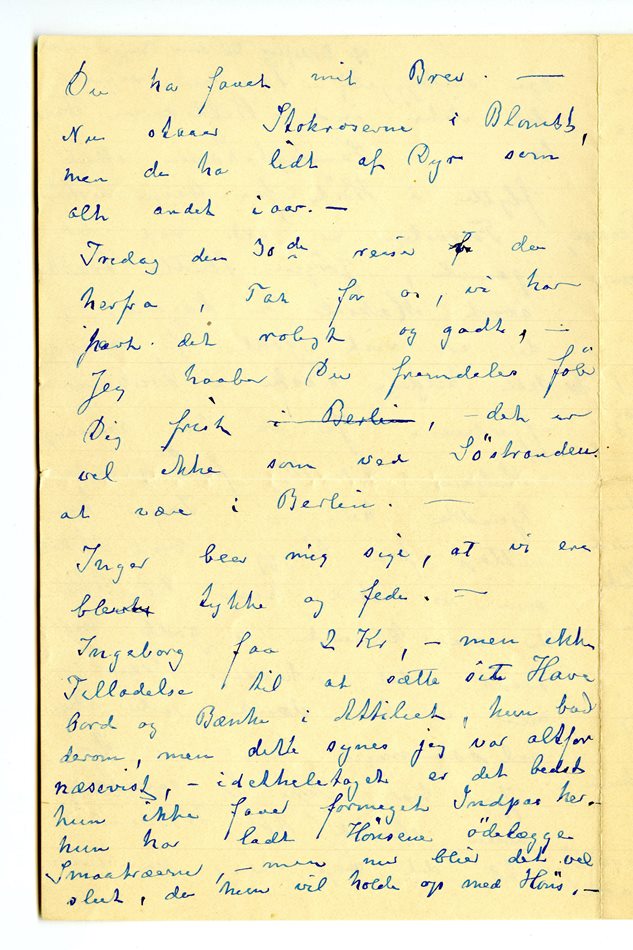 Du har faaet mit Brev. —
Nu staar Stokroserne i Blomst,
men de ha lidt af Dyr som
alt andet i aar. —
Fredag den 30de reise de
herfra, Tak for os, vi har
havt det roligt og godt, —
Jeg haaber Du fremdeles föler
Dig frisk i Berlin, — det er
vel ikke som ved Söstranden
at være i Berlin. —
Inger beer mig sige, at vi ere
blevne tykke og fede. —
Ingeborg faar 2 Kr, — men ikke
Tilladelse til at sætte sit Have
bord og Bænke i Attiliet, hun bad
derom, men dette synes jeg var altfor
næsevist, — idetheletaget er det bedst
hun ikke faaer formeget Indpas her. —
hun har ladt Hönsene ödelægge
Smaatræerne, — men nu blier det vel
slut, da hun vil holde op med Höns. —